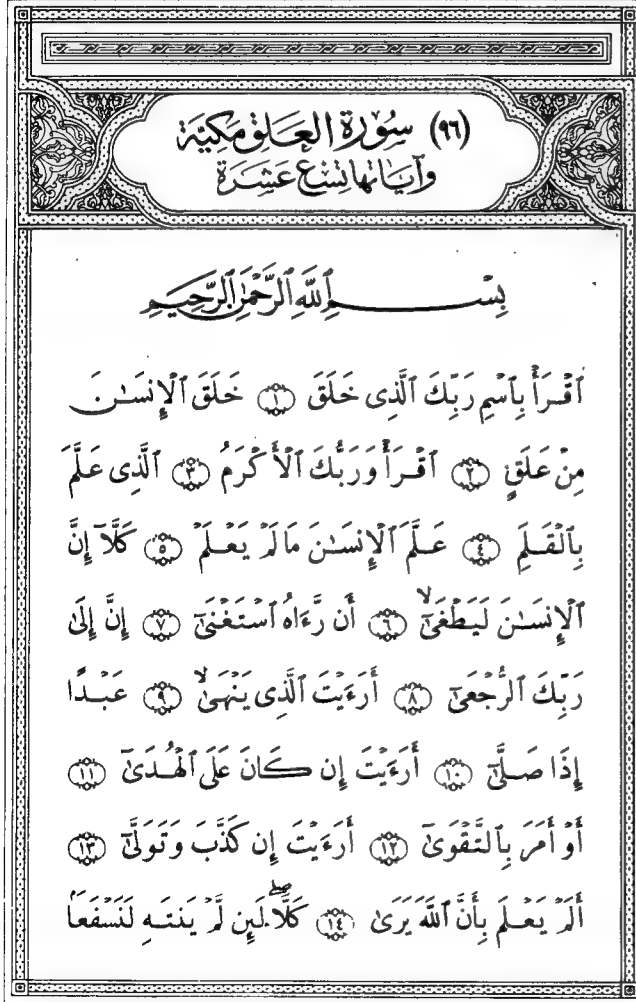 (٩٦) سُورَة العَلَق مَكيَّة
وَآيَاتهَا تِسْع عَشرَة
بِسْمِ ٱللَّهِ ٱلرَّحْمَٰنِ ٱلرَّحِيمِ
ٱقْرَأْ بِٱسْمِ رَبِّكَ ٱلَّذِى خَلَقَ ١ خَلَقَ ٱلْإِنسَٰنَ
مِنْ عَلَقٍ ٢ ٱقْرَأْ وَرَبُّكَ ٱلْأَكْرَمُ ٣ ٱلَّذِى عَلَّمَ
بِٱلْقَلَمِ ٤ عَلَّمَ ٱلْإِنسَٰنَ مَا لَمْ يَعْلَمْ ٥ كَلَّآ إِنَّ
ٱلْإِنسَٰنَ لَيَطْغَىٰٓ ۙ ٦ أَن رَّءَاهُ ٱسْتَغْنَىٰٓ ٧ إِنَّ إِلَىٰ
رَبِّكَ ٱلرُّجْعَىٰٓ ٨ أَرَءَيْتَ ٱلَّذِى يَنْهَىٰ ۙ ٩ عَبْدًا
إِذَا صَلَّىٰٓ ١٠ أَرَءَيْتَ إِن كَانَ عَلَى ٱلْهُدَىٰٓ ١١
أَوْ أَمَرَ بِٱلتَّقْوَىٰٓ ١٢ أَرَءَيْتَ إِن كَذَّبَ وَتَوَلَّىٰٓ ١٣
أَلَمْ يَعْلَم بِأَنَّ ٱللَّهَ يَرَىٰ ١٤ كَلَّا ۖ لَئِن لَّمْ يَنتَهِ لَنَسْفَعَۢا